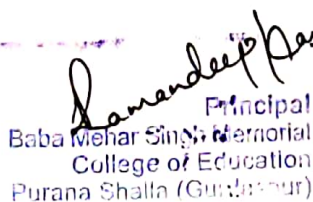 Ramandeep
Principal
Baba Mehar Singh Memorial
College of Education
Purana Shalla (Gurdaspur)